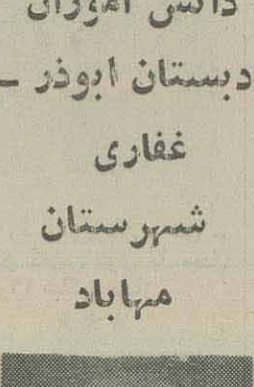 دانش آموزان
دبستان ابوذر -
غفاری
شهرستان
مهاباد